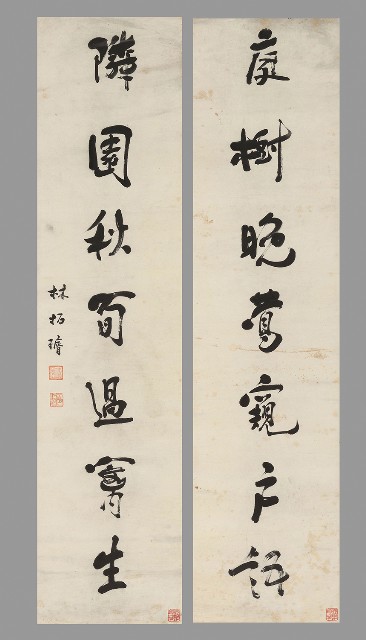 庭樹晚鶯窺戶語
隣園秋筍過窗生
林柏璿